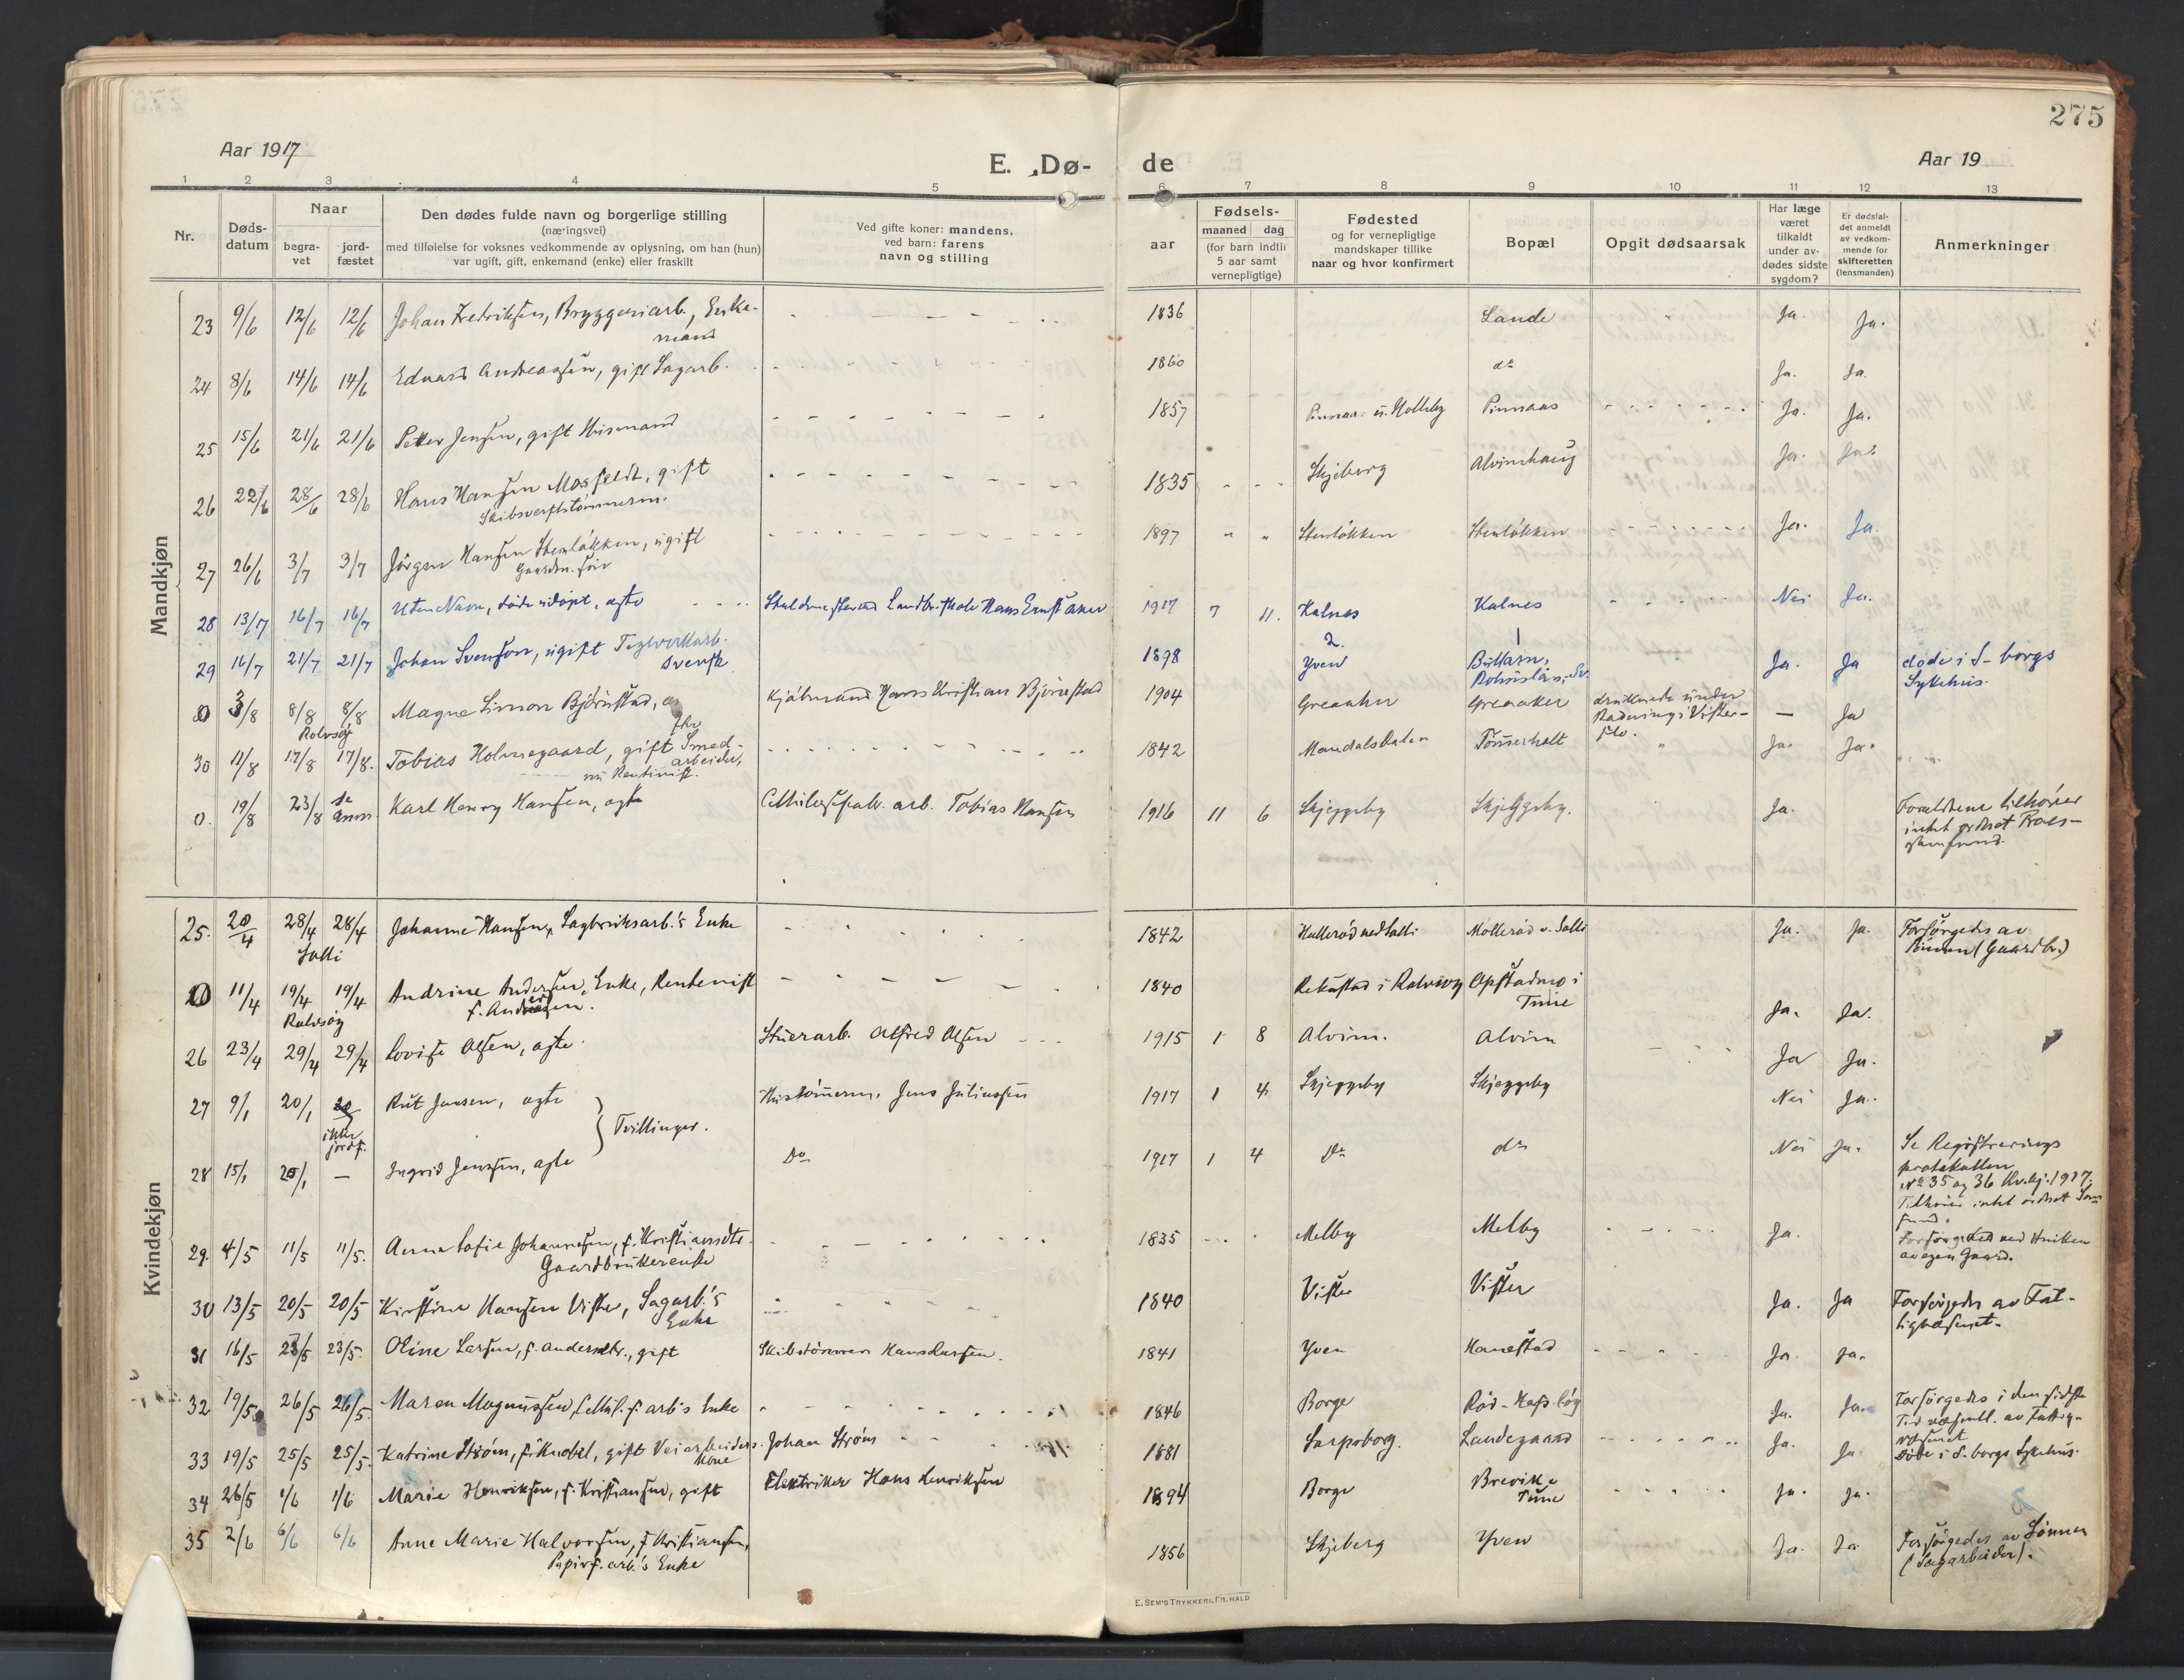 275
Aar 1917
E. Dø-
de
Aar 19
1 2 3 4 5 6 7 8 9 10 11 12 13
Nr.
Døds-
datum
Naar
begra-
vet
jord-
fæstet
Den dødes fulde navn og borgerlige stilling
(næringsvei)
med tilføielse for voksnes vedkommende av oplysning, om han (hun)
var ugift, gift, enkemand (enke) eller fraskilt
Ved gifte koner: mandens,
ved barn: farens
navn og stilling
aar
Fødsels-
maaned dag
(for barn indtil
5 aar samt
vernepligtige)
Fødested
og for vernepligtige
mandskaper tillike
naar og hvor konfirmert
Bopæl
Opgit dødsaarsak
Har læge
været
tilkaldt
under av-
dødes sidste
sygdom?
Er dødsfal-
det anmeldt
av vedkom-
mende for
skifteretten
(lensmanden)
Anmerkninger
Mandkjøn
23 9/6 12/6 12/6 Johan Fredriksen, Bryggeriarb., Enke-
mand
1836 Lande Ja. Ja.
24 8/6 14/6 14/6 Edvard Andreassen, gift Sagarb.
1860 do Ja. Ja.
25 15/6 21/6 21/6 Petter Jensen, gift Husmand
1857 Pinnaas Ja. Ja.
26 22/6 28/6 28/6 Hans Hansen Mosfeldt, gift
Skibsverftstømmerm.
1835 Skjeberg Alvimhaug Ja. Ja.
27 26/6 3/7 3/7 Jörgen Hansen Stenlökken, ugift
1897 Stenlökken Stenlökken Ja. Ja.
28 13/7 16/7 16/7 Uten Navn, döde udöpt, ægte
Hans Ernst Aaner 1917 7 11. Kalnes Kalnes Nei Ja.
29 16/7 21/7 21/7 Johan Svenson, ugift Teglverksarb.
Svensk
1898 2. Yven 1 Ja. Ja döde i S-borgs
Sykehus.
0 3/8 8/8 8/8 Magne Simon Björnstad,
Rolvsöy
Kjöbmand Hans Kristian Björnestad 1904 Greaaker Greaaker druknede under
Badning i Vister-
flo. — Ja
30 11/8 17/8 17/8. Tobias Holmegaard, gift Smed-
arbeider,
nu Rentenist.
1842 Mandalsdalen Tömmerholt Ja. Ja.
0. 19/8 23/8 Karl Henry Hansen, ægte
Cellulosefabr. arb. Tobias Hansen 1916 11 6 Skjeggeby Skjeggeby. Ja. Forældrene tilhörer
intet ordnet Troes-
samfund.
Kvindekjøn
25. 20/4 28/4 28/4 Johanne Hansen, Sagbruksarb.'s Enke
Solli
1842 Möllerød v. Solli Ja. Ja. Forsörgedes av
Sönnen (Gaardbr.)
0 11/4 19/4 19/4 Andrine Andersen, Enke, Rentenist
Rolvsöy
1840 Rekustad i Rolvsöy Opstadmo i
Tune
Ja. Ja.
26 23/4 29/4 29/4 Lovise Olsen, ægte
Alfred Olsen 1915 1 8 Alvim. Alvim Ja Ja.
27 9/1 20/1 20 Rut Jensen, ægte
ikke
jordf.
Tvillinger.
Jens Juliussen 1917 1 4 Skjeggeby Skjeggeby Nei Ja.
28 15/1 20/1 — Ingrid Jensen, ægte
Do 1917 1 4 Do do Nei Ja. Se Registrerings
protokollen
No 35 og 36 Kv.kj. 1917.
Tilhörer intet ordnet Sam
fund.
29. 4/5 11/5 11/5. Anna Sofie Johannesen, f. Kristiansdtr.
Gaardbrukerenke
1835 Melby Melby Ja. Forsörgedes
av egen Gaard.
30 13/5 20/5 20/5 Kirstine Hansen Vister, Sagarb.'s
Enke
1840 Vister Vister Ja. Ja Forsörgedes av Fat-
tigvæsenet.
31 16/5 23/5 23/5. Oline Larsen, f. Andersdtr., gift
Skibstömmerm Hans Larsen. 1841 Yven Hanestad Ja. Ja.
32 19/5 26/5 26/5. Maren Magnussen, Cellul.f. arb's Enke
1846 Borge Ja. Ja. Forsörgedes i den sidste
Tid væsentl. av Fattig-
væsenet
33 19/5 25/5 25/5. Katrine Ström, f. Knobel, gift Veiarbeiders
Kone
Johan Ström 1881 Sarpsborg. Landegaard Ja. Ja. Döde i S.borgs Sykehus.
34 26/5 1/6 1/6 Marie Henriksen, f. Kristiansen, gift
Elektriker Hans Henriksen 1894 Borge Brevik
Tune
Ja. Ja.
35 2/6 6/6 6/6 Anne Marie Halvorsen, f. Kristiansen,
Papirf. arb.'s Enke
1856 Skjeberg Yven Ja. Ja Forsörgedes av Sönnen
(Sagarbeider).
E. SEM'S TRYKKERI, FR.HALD